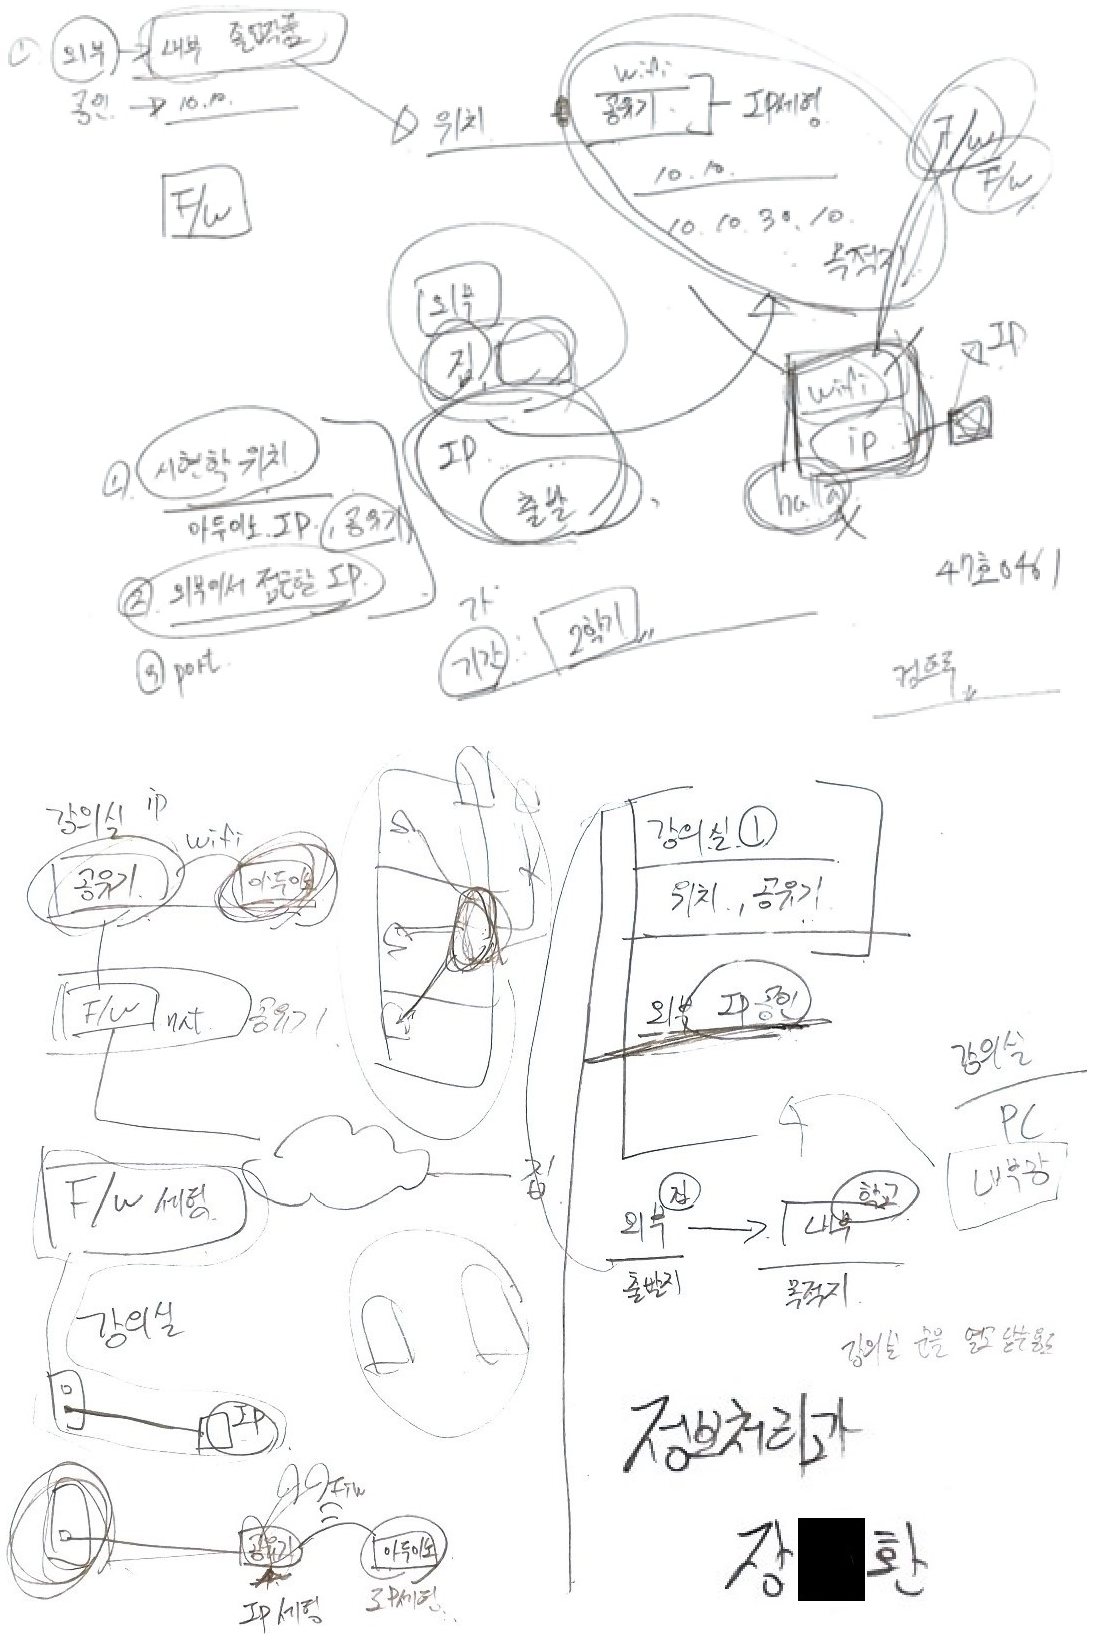 ① 외부 → 내부 졸업작품
공인 → 10.10.
위치
F/W
wifi
공유기
IP세팅
10.10.
10.10.30.10.
목적지
F/W
F/W
외부
집
IP
출발
wifi
ip
IP
① 시현할 위치
아두이노 IP, 공유기
② 외부에서 접근할 IP
③ port
기간 : 2학기
47호0461
강의실 ip
공유기
wifi
아두이노
F/W nat.
공유기
F/W 세팅
집
강의실
IP
공유기
아두이노
IP세팅
IP세팅
강의실 ①
위치, 공유기
외부 IP 공인
강의실
PC
내부망
외부 집 → 내부 학교
출발지
목적지
강의실 문을 열고 닫는 용도
정보처리과
장 환